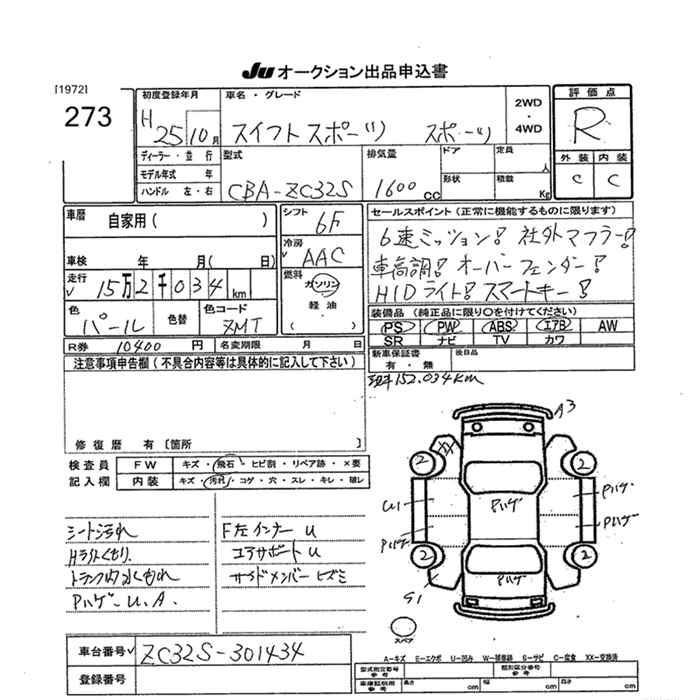 JU オークション出品申込書
[1972]
273
初度登録年月
H 25年10月
車名・グレード
スイフトスポーツ スポーツ
2WD
・
4WD
評価点
R
外装 内装
C C
ディーラー・並行
モデル年式 年
ハンドル 左・右
型式
CBA-ZC32S
排気量
1600cc
ドア
形状
定員
人
積載
Kg
車歴
自家用( )
シフト
6F
冷房
AAC
燃料
ガソリン
軽油
( )
車検 年 月( 日)
走行
15万2千034km
色
パール
色替
色コード
ZMT
R券 10400円
名変期限 月 日
セールスポイント(正常に機能するものに限ります)
6速ミッション! 社外マフラー!
車高調! オーバーフェンダー!
HIDライト! スマートキー!
装備品(純正品に限り○を付けてください)
PS PW ABS エアB AW
SR ナビ TV カワ
新車保証書
有・無
後日品
152.034km
注意事項申告欄(不具合内容等は具体的に記入して下さい)
修復歴 有[箇所 ]
検査員
記入欄
FW キズ・飛石・ヒビ割・リペア跡・×要
内装 キズ・汚れ・コゲ・穴・スレ・キレ・破レ
シート汚れ
Hライトくもり
トランク内
Pハゲ U.A.
F左インナーU
コアサポートU
サイドメンバーヒズミ
A3
XX
2
2
U1
Pハゲ
Pハゲ
Pハゲ
Pハゲ
Pハゲ
2
2
S1
スペア
車台番号 ZC32S-301434
登録番号
A-キズ E-エクボ U-凹み W-補修跡 S-サビ C-腐食 XX-交換済
型式指定番号
参考
類別区分番号
参考
車庫証明用
参考
長さ cm
幅 cm
高さ cm